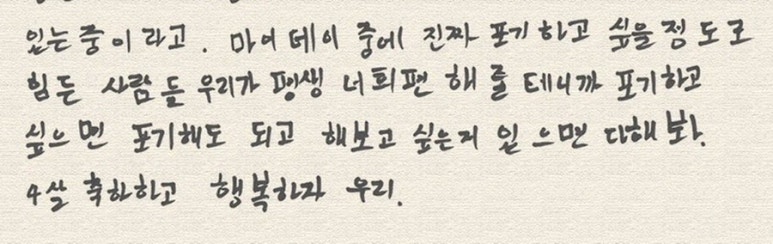 있는 중이라고. 마이데이 중에 진짜 포기하고 싶을 정도로
힘든 사람들 우리가 평생 너희편 해줄 테니까 포기하고
싶으면 포기해도 되고 해보고 싶은거 있으면 다해봐.
4살 축하하고 행복하자 우리.